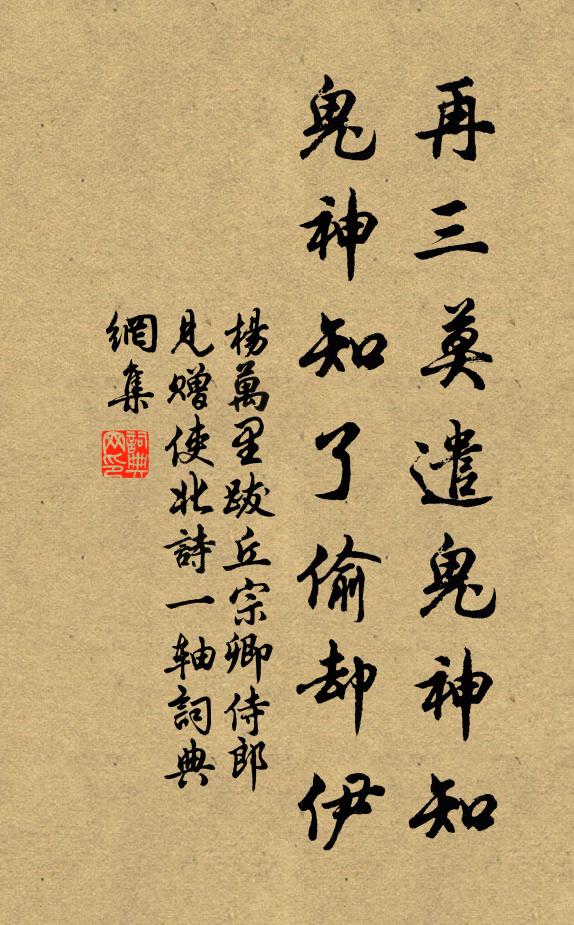 再三莫遣鬼神知
鬼神知了偷却伊
楊萬里跋丘宗卿侍郎
見贈使北詩一軸詞典
網集
詞典
网印